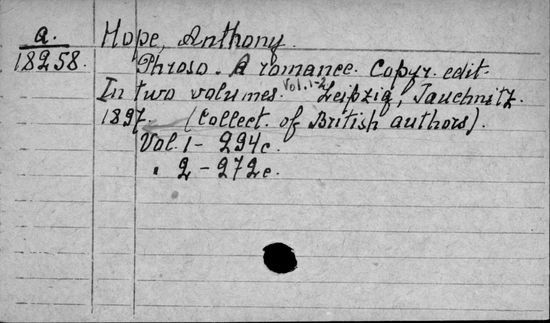 a.
18258.
Hope, Anthony.
Phroso. A romance. Copyr. edit.
In two volumes. Vol. 1-2 Leipzig, Tauchnitz.
1897. (Collect. of British authors).
Vol. 1 - 294c.
" 2 - 272c.